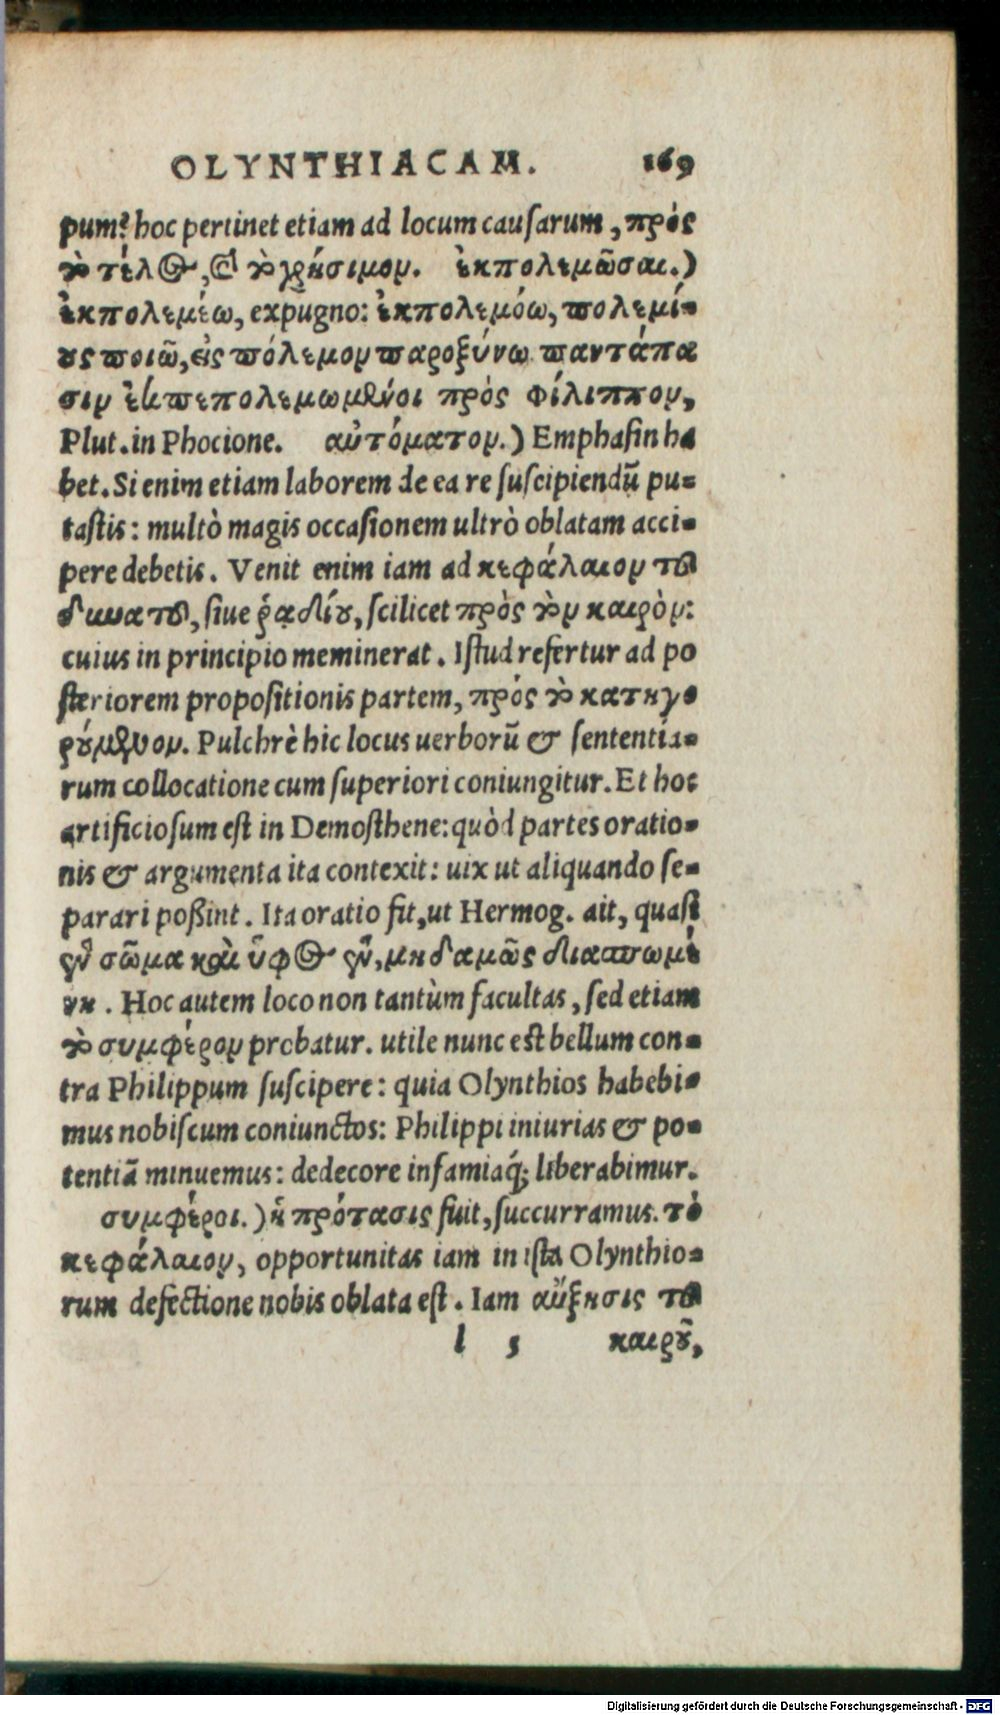 OLYNTHIACAM. 169
pum? hoc pertinet etiam ad locum causarum, πρὸς
τὸ τέλος, & τὸ χρήσιμον. ἐκπολεμῶσαι.)
ἐκπολεμέω, expugno: ἐκπολεμόω, πολεμί-
ους ποιῶ, εἰς πόλεμον παροξύνω. παντάπα
σιν ἐκπεπολεμωμένοι πρὸς φίλιππον,
Plut. in Phocione. αὐτόματον.) Emphasin ha
bet. Si enim etiam laborem de ea re suscipiendū pu-
tastis: multò magis occasionem ultrò oblatam acci-
pere debetis. Venit enim iam ad κεφάλαιον τοῦ
δυνατοῦ, siue ῥαδίου, scilicet πρὸς τὸν καιρὸν:
cuius in principio meminerat. Istud refertur ad po
steriorem propositionis partem, πρὸς τὸ κατηγο
ρούμενον. Pulchrè hic locus uerborū & sententia-
rum collocatione cum superiori coniungitur. Et hoc
artificiosum est in Demosthene: quòd partes oratio-
nis & argumenta ita contexit: uix ut aliquando se-
parari poßint. Ita oratio fit, ut Hermog. ait, quasi
ἓν σῶμα καὶ ὕφος ἓν, μηδαμῶς διασπωμέ
νη. Hoc autem loco non tantùm facultas, sed etiam
τὸ συμφέρον probatur. utile nunc est bellum con-
tra Philippum suscipere: quia Olynthios habebi-
mus nobiscum coniunctos: Philippi iniurias & po-
tentiā minuemus: dedecore infamiaq́; liberabimur.
συμφέροι.) ἡ πρότασις fuit, succurramus. τὸ
κεφάλαιον, opportunitas iam in ista Olynthio-
rum defectione nobis oblata est. Iam αὔξησις τοῦ
l 5 καιροῦ,
Digitalisierung gefördert durch die Deutsche Forschungsgemeinschaft - DFG